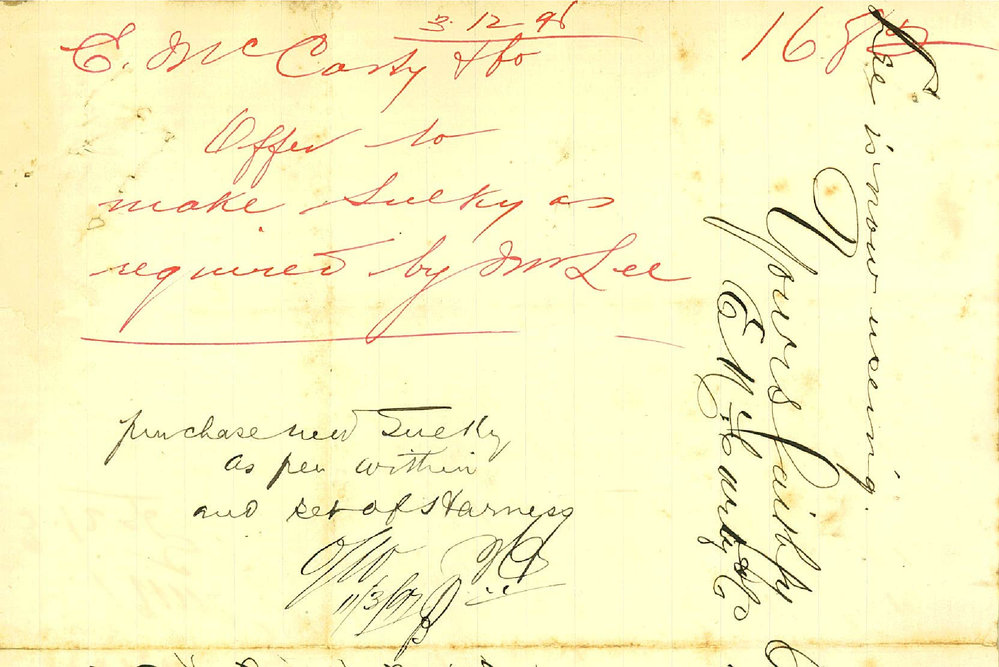 3.12.96
E. McCarty & Co
Offer to
make Sulky as
required by Mr Lee
purchase new Sulky
as per within
and set of Harness
11/3/97
Lee is now using.
Yours faithly
E McCarty & Co